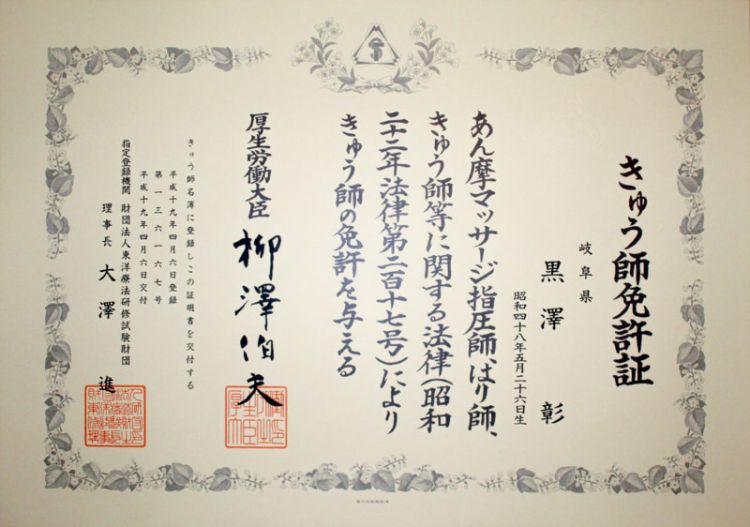 きゅう師免許証
岐阜県
黒澤 彰
昭和四十八年五月二十六日生
あん摩マッサージ指圧師、はり師、
きゅう師等に関する法律(昭和
二十二年法律第二百十七号)により
きゅう師の免許を与える
厚生労働大臣 柳澤伯夫
きゅう師名簿に登録しこの証明書を交付する
平成十九年四月六日登録
第一三六一六七号
平成十九年四月六日交付
指定登録機関 財団法人東洋療法研修試験財団
理事長 大澤 進